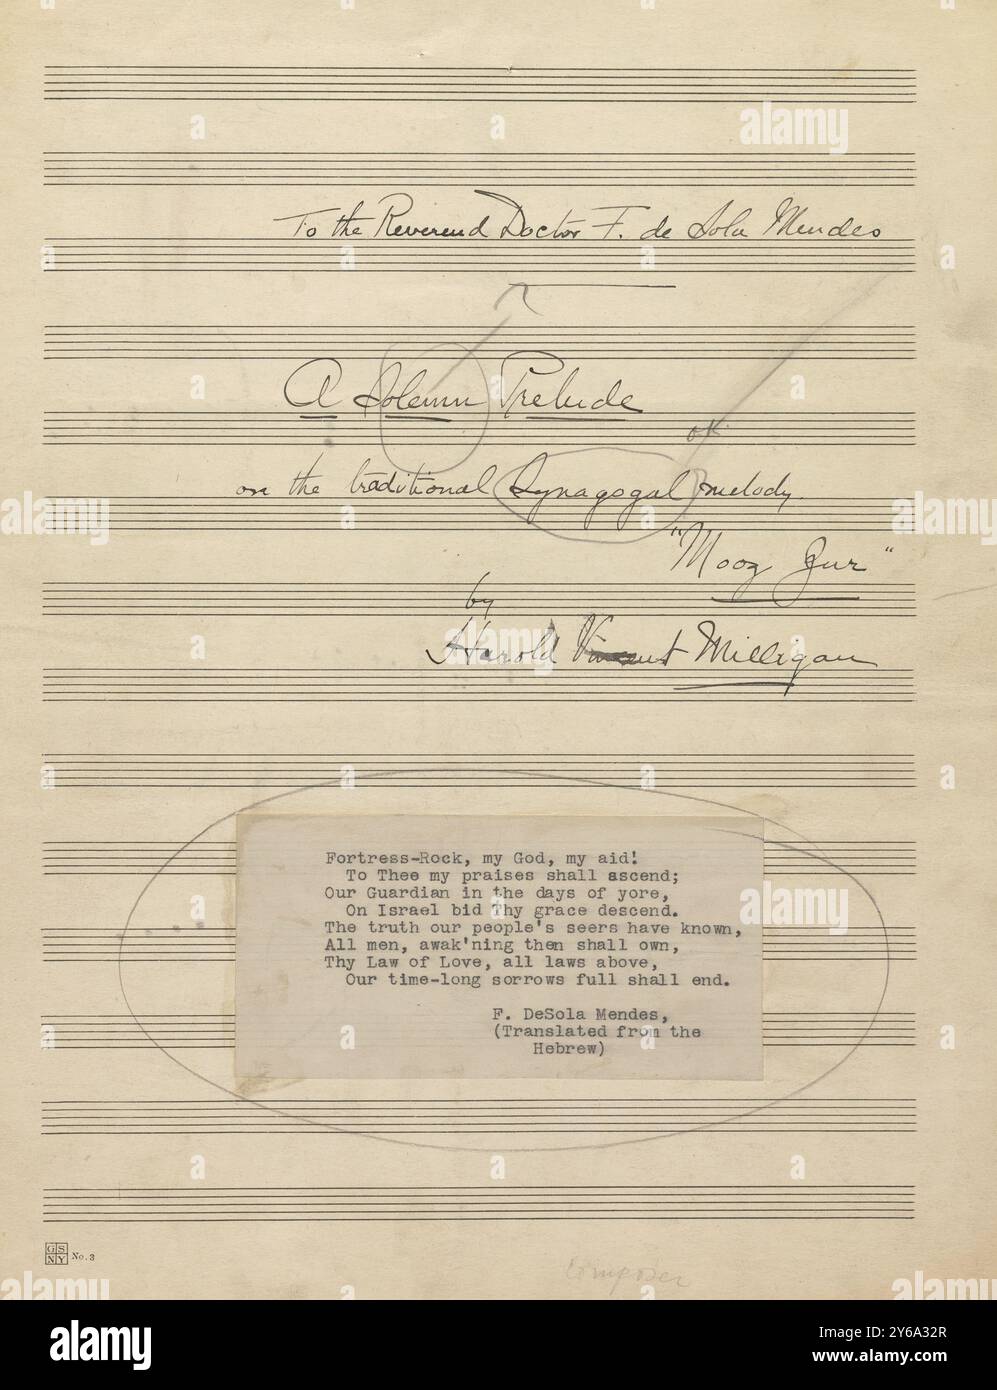 To the Reverend Doctor F. de Sola Mendes
A Solemn Prelude
OK
on the traditional Synagogal melody
"Mooz Zur"
by
Harold Vincent Milligan
Fortress-Rock, my God, my aid!
To Thee my praises shall ascend;
Our Guardian in the days of yore,
On Israel bid Thy grace descend.
The truth our people's seers have known,
All men, awak'ning then shall own,
Thy Law of Love, all laws above,
Our time-long sorrows full shall end.
F. DeSola Mendes,
(Translated from the
Hebrew)
GS
NY No. 3
Composer
alamy
Image ID: 2Y6A32R
www.alamy.com